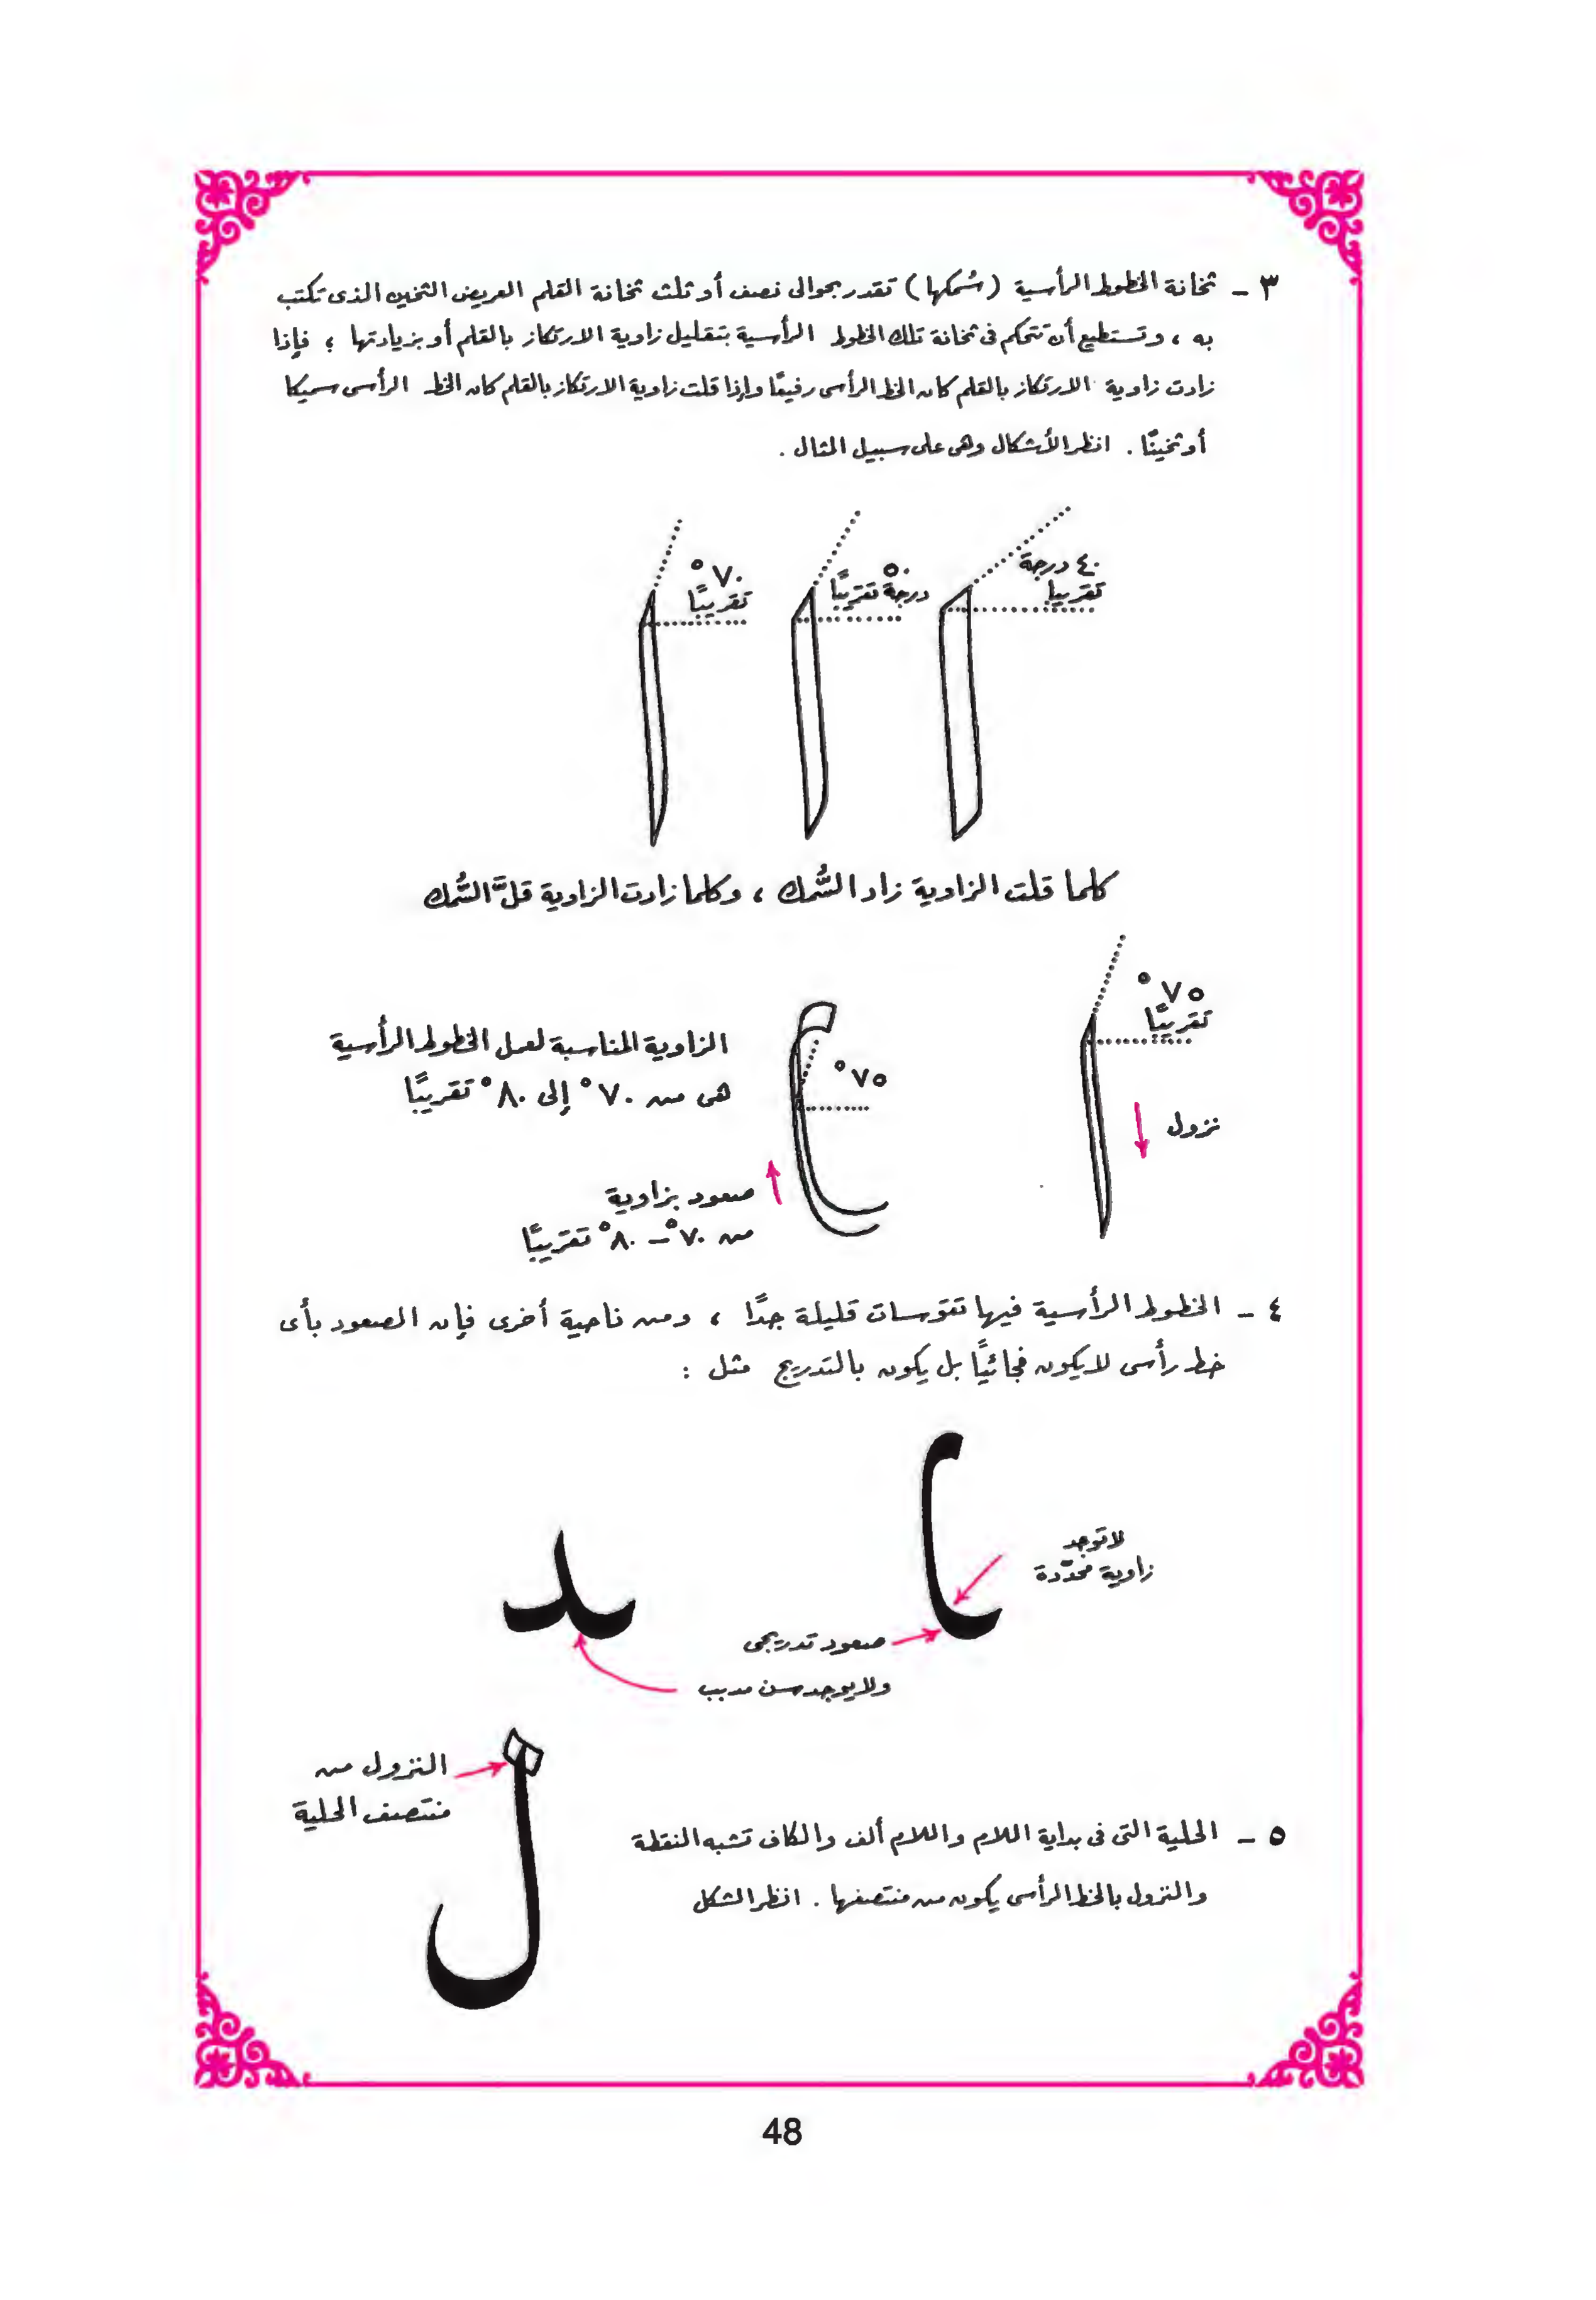 ٣ - ثخانة الخطوط الرأسية (سُمكها) تقدر بحوالى نصف أو ثلث ثخانة القلم العريض الثخين الذى تكتب
به ، وتستطيع أن تتحكم فى ثخانة تلك الخطوط الرأسية بتقليل زاوية الارتكاز بالقلم أو بزيادتها ؛ فإذا
زادت زاوية الارتكاز بالقلم كان الخط الرأسى رفيعًا وإذا قلت زاوية الارتكاز بالقلم كان الخط الرأسى سميكا
أو ثخينًا . انظر الأشكال وهى على سبيل المثال .
٤٠ درجة
تقريبا
٥٠
درجة تقريبًا
٧٠°
تقريبًا
كلما قلت الزاوية زاد السُّمك ، وكلما زادت الزاوية قلَّ السُّمك
٧٥°
تقريبًا
نزول
٧٥°
الزاوية المناسبة لعمل الخطوط الرأسية
هى من ٧٠° إلى ٨٠° تقريبًا
صعود بزاوية
من ٧٠° - ٨٠° تقريبًا
٤ - الخطوط الرأسية فيها تقوسات قليلة جدًا ، ومن ناحية أخرى فإن الصعود بأى
خط رأسى لا يكون فجائيًا بل يكون بالتدريج مثل :
لا توجد
زاوية محدّدة
صعود تدريجى
ولا يوجد سن مدبب
النزول من
منتصف الحلية
٥ - الحلية التى فى بداية اللام واللام ألف والكاف تشبه النقطة
والنزول بالخط الرأسى يكون من منتصفها . انظر الشكل
48